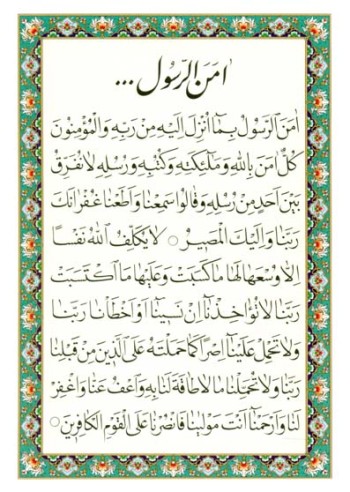 اٰمَنَ الرَّسُول ...
اٰمَنَ الرَّسُولُ بِمَا اُنْزِلَ اِلَيْهِ مِنْ رَبِّهِ وَالْمُؤْمِنُونَ
كُلٌّ اٰمَنَ بِاللّٰهِ وَمَلٰئِكَتِهِ وَكُتُبِهِ وَرُسُلِهِ لَا نُفَرِّقُ
بَيْنَ اَحَدٍ مِنْ رُسُلِهِ وَقَالُوا سَمِعْنَا وَاَطَعْنَا غُفْرَانَكَ
رَبَّنَا وَاِلَيْكَ الْمَصِيرُ ○ لَا يُكَلِّفُ اللّٰهُ نَفْسًا
اِلَّا وُسْعَهَا لَهَا مَا كَسَبَتْ وَعَلَيْهَا مَا اكْتَسَبَتْ
رَبَّنَا لَا تُؤَاخِذْنَا اِنْ نَسِينَا اَوْ اَخْطَاْنَا رَبَّنَا
وَلَا تَحْمِلْ عَلَيْنَا اِصْرًا كَمَا حَمَلْتَهُ عَلَى الَّذِينَ مِنْ قَبْلِنَا
رَبَّنَا وَلَا تُحَمِّلْنَا مَا لَا طَاقَةَ لَنَا بِهِ وَاعْفُ عَنَّا وَاغْفِرْ
لَنَا وَارْحَمْنَا اَنْتَ مَوْلٰينَا فَانْصُرْنَا عَلَى الْقَوْمِ الْكَافِرِينَ ○